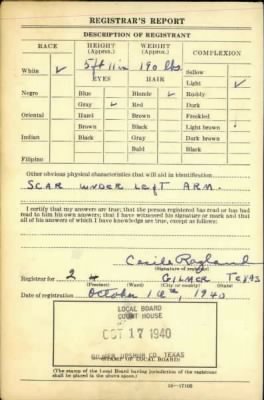 REGISTRAR'S REPORT
DESCRIPTION OF REGISTRANT
RACE HEIGHT (Approx.) WEIGHT (Approx.) COMPLEXION
White ✓ 5 ft 11 in 190 lbs. Sallow
EYES HAIR Light ✓
Negro Blue Blonde ✓ Ruddy
Gray ✓ Red Dark
Oriental Hazel Brown Freckled
Brown Black Light brown
Indian Black Gray Dark brown
Bald Black
Filipino
Other obvious physical characteristics that will aid in identification
SCAR UNDER LEFT ARM.
I certify that my answers are true; that the person registered has read or has had
read to him his own answers; that I have witnessed his signature or mark and that
all of his answers of which I have knowledge are true, except as follows:
Ragland
(Signature of registrar)
Registrar for 2 GILMER TEXAS
(Precinct) (Ward) (City or county) (State)
Date of registration October 1940
LOCAL BOARD
COURT HOUSE
OCT 17 1940
GILMER UPSHUR CO. TEXAS
(STAMP OF LOCAL BOARD)
(The stamp of the Local Board having jurisdiction of the registrant
shall be placed in the above space.)